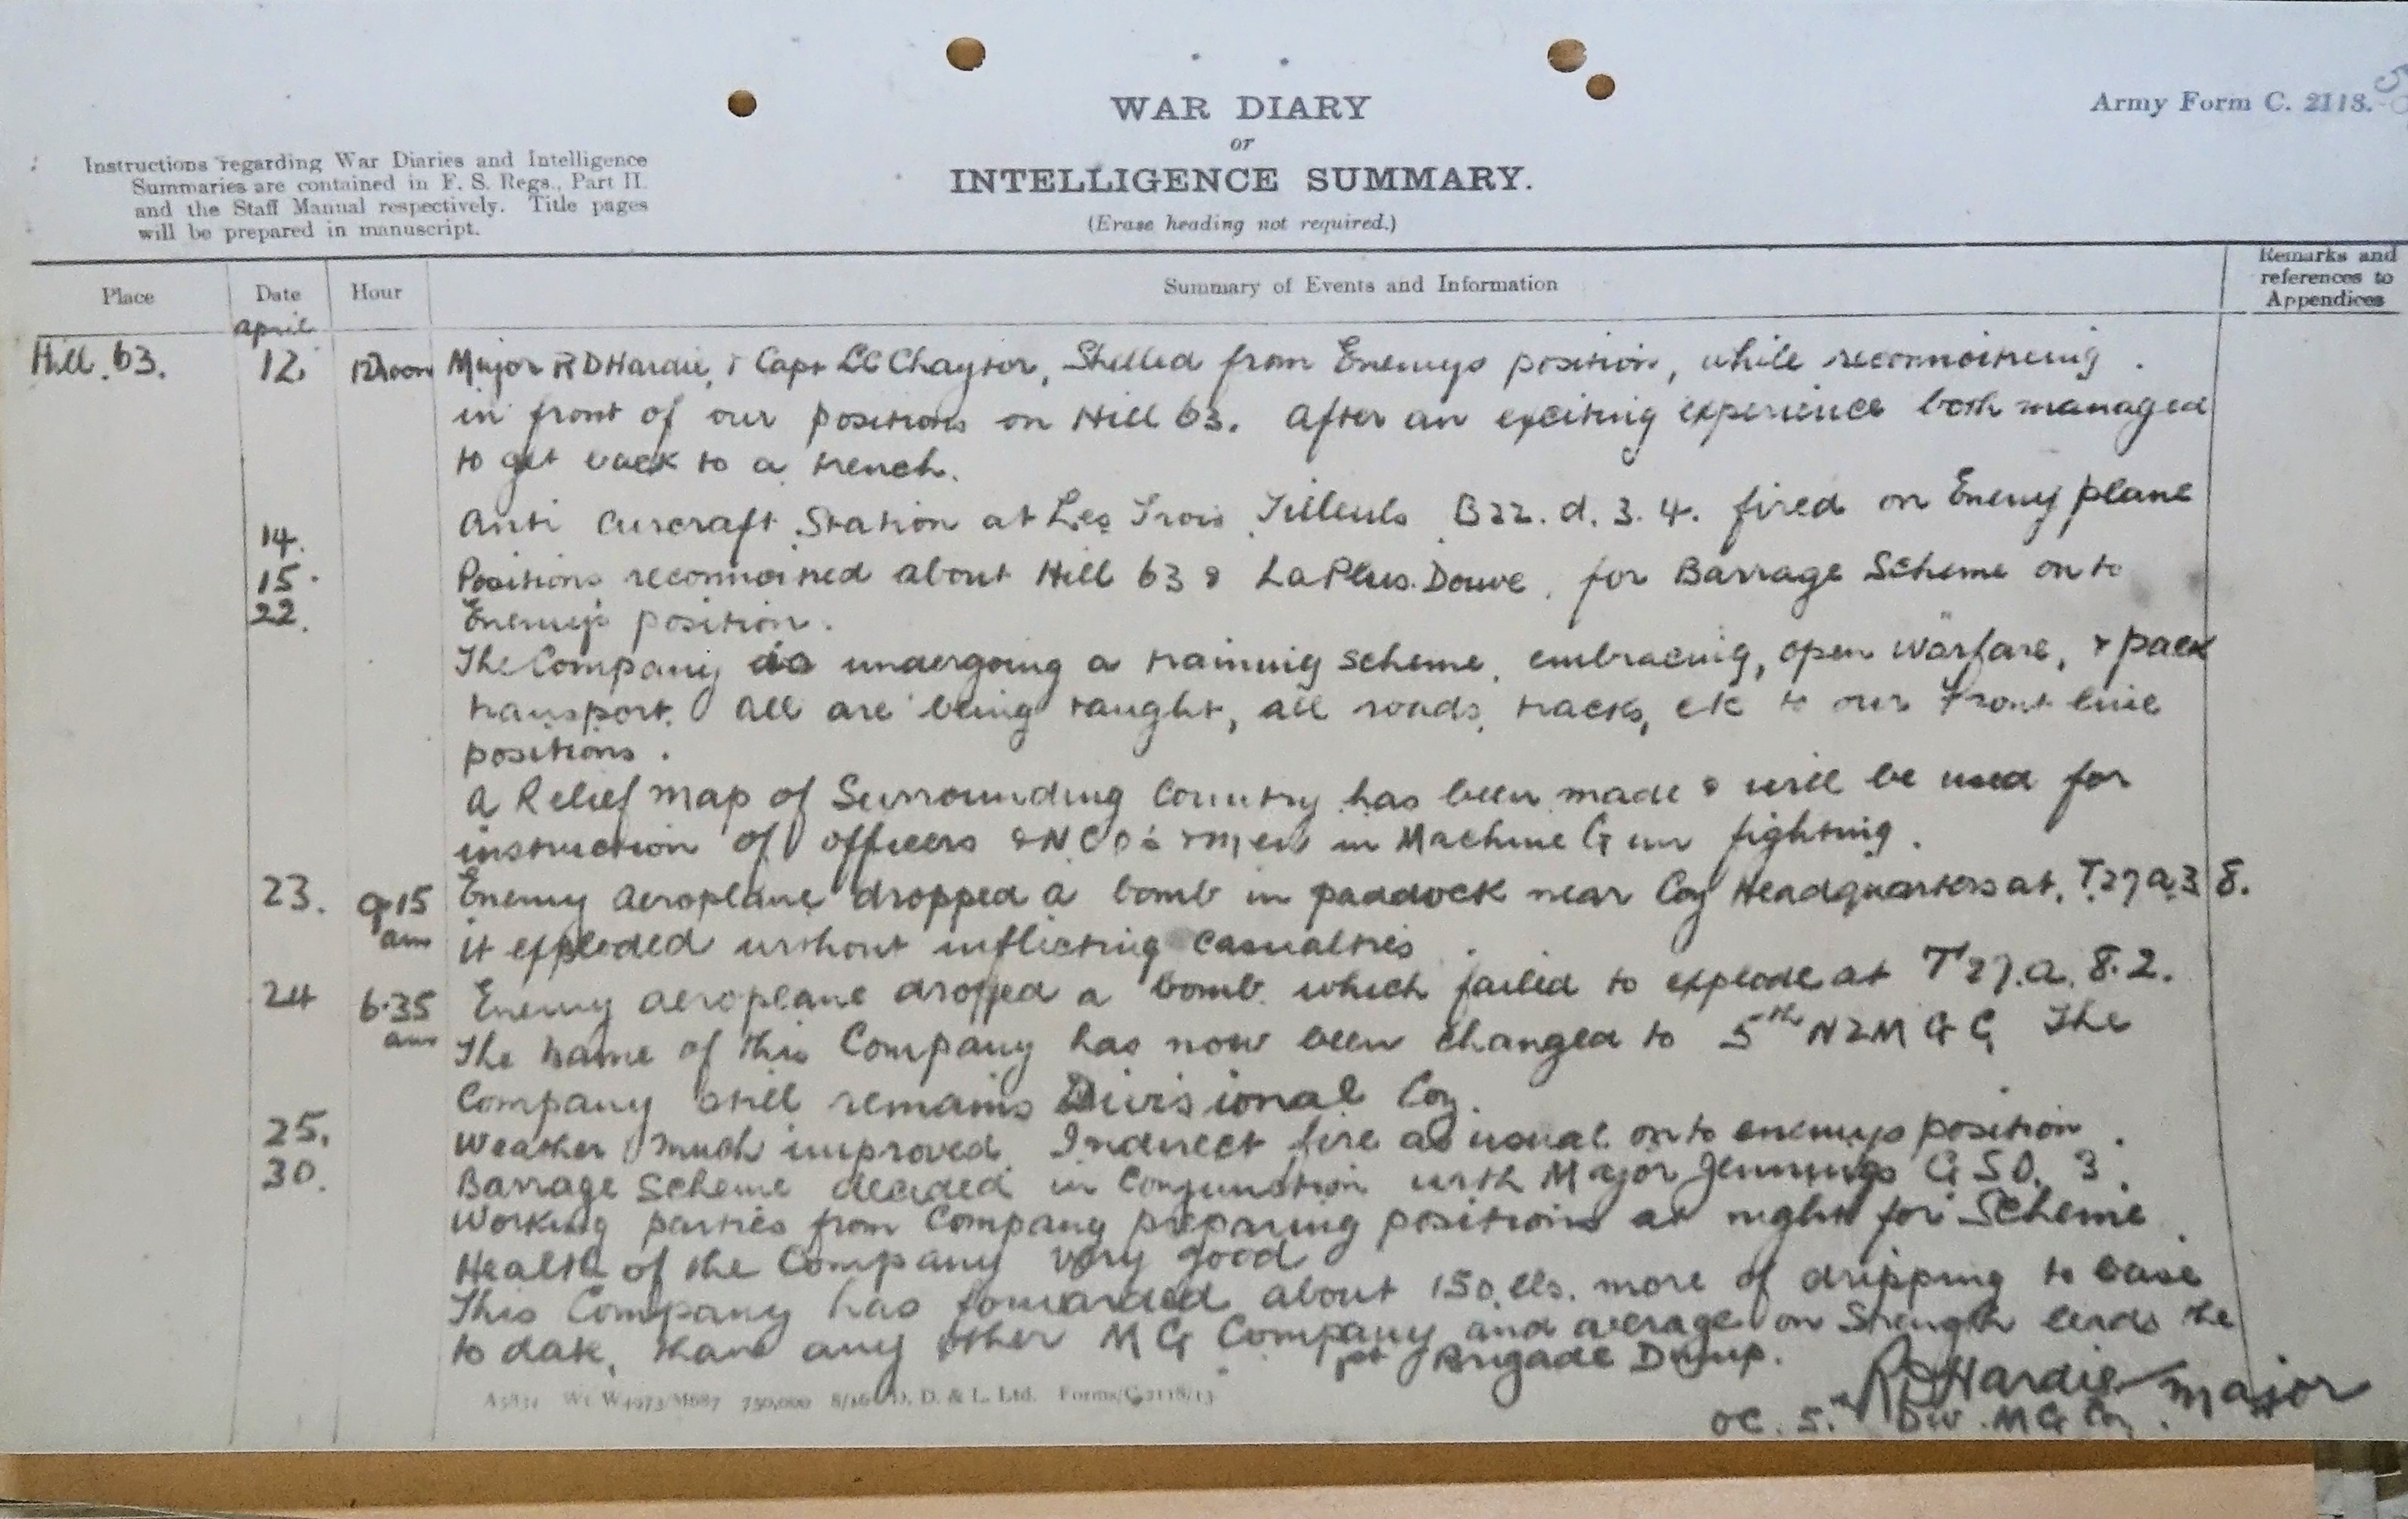 WAR DIARY
or
INTELLIGENCE SUMMARY.
(Erase heading not required.)
Army Form C. 2118.
Instructions regarding War Diaries and Intelligence
Summaries are contained in F. S. Regs., Part II.
and the Staff Manual respectively. Title pages
will be prepared in manuscript.
Place Date Hour Summary of Events and Information Remarks and references to Appendices
April
Hill 63. 12. 12 noon Major R D Hardie, & Capt LC Chaytor, Shelled from Enemys position, while reconnoitreing
in front of our positions on Hill 63. After an exciting experience both managed
to get back to a trench.
14. Anti Aircraft Station at Les Trois Tilleuls B22.d.3.4. fired on Enemy plane
15. Positions reconnoitred about Hill 63 & La Plus Douve, for Barrage Scheme onto
22. Enemy's position.
The Company is undergoing a training scheme, embracing, open warfare, & pack
transport. All are being taught, all roads, tracks, etc to our Front line
positions.
A Relief map of Surrounding Country has been made & will be used for
instruction of officers & NCO's & men in Machine Gun fighting.
23. 9.15 am Enemy Aeroplane dropped a bomb in paddock near Coy Headquarters at. T.27a.3 8.
it exploded without inflicting casualties
24 6.35 am Enemy aeroplane dropped a bomb which failed to explode at T27.a.8.2.
The name of this Company has now been changed to 5th NZMGC The
Company still remains Divisional Coy.
25. Weather much improved. Indirect fire as usual onto enemys position.
30. Barrage Scheme decided in Conjunction with Major Jennings GSO. 3.
Working parties from Company preparing positions at night for Scheme
Health of the Company very good
This Company has forwarded about 150 lbs. more of dripping to base
to date, than any other MG Company and average on Strength leads the
pt Brigade Dump.
RD Hardie Major
OC. 5th Div. MG Coy.
750,000 D. D. & L. Ltd. Forms/C.2118/13